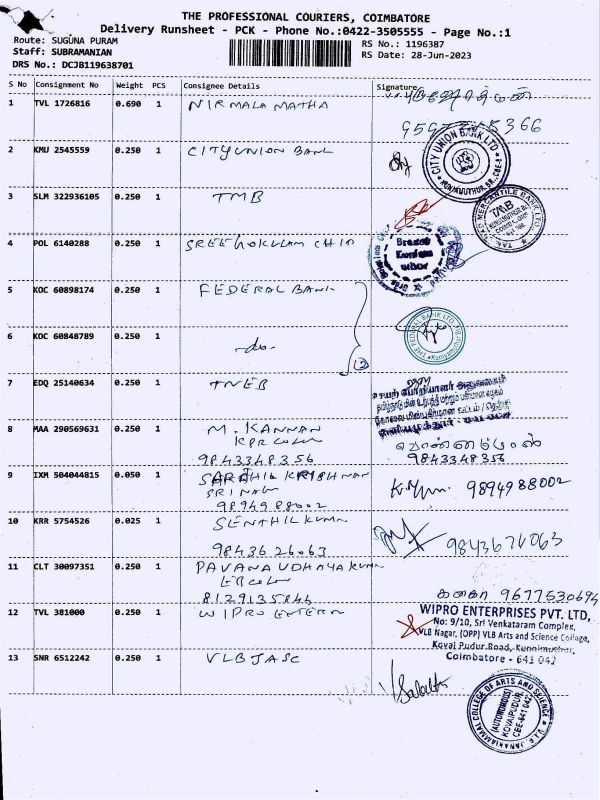 THE PROFESSIONAL COURIERS, COIMBATORE
Delivery Runsheet - PCK - Phone No.:0422-3505555 - Page No.:1
Route: SUGUNA PURAM
Staff: SUBRAMANIAN
DRS No.: DCJB119638701
RS No.: 1196387
RS Date: 28-Jun-2023
S No Consignment No Weight PCS Consignee Details Signature
1 TVL 1726816 0.690 1 NIRMALA MATHA
2 KMU 2545559 0.250 1 CITY UNION BANK
CITY UNION BANK LTD
3 SLM 322936105 0.250 1 TMB
TMB
4 POL 6140288 0.250 1 SREE GOKULAM CHIT
5 KOC 60898174 0.250 1 FEDERAL BANK
6 KOC 60848789 0.250 1 -do-
2
THE FEDERAL BANK LTD
7 EDQ 25140634 0.250 1 TNEB
8 MAA 290569631 0.250 1 M. KANNAN
9843348356
9843348356
9 IXM 504044815 0.050 1
SRI NAG
9894988002
9894988002
10 KRR 5754526 0.025 1 SENTHIL KUMA
9843626063
11 CLT 30097351 0.250 1 PAVANA UDHAYA KUM
9677530694
12 TVL 381000 0.250 1 WIPRO ENTERP
WIPRO ENTERPRISES PVT. LTD,
No: 9/10, Sri Venkataram Complex,
VLB Nagar, (OPP) VLB Arts and Science College,
Kovai Pudur Road, Kuniamuthur,
Coimbatore - 641 042
13 SNR 6512242 0.250 1 VLBJASC
V.L.B. JANAKIAMMAL COLLEGE OF ARTS AND SCIENCE
(AUTONOMOUS)
KOVAIPUDUR
CBE-641 042